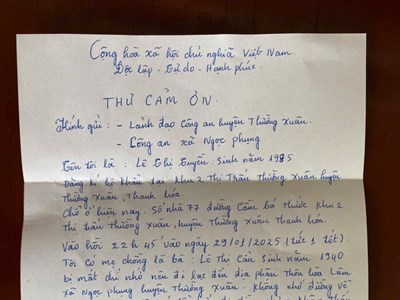 Cộng hoà xã hội chủ nghĩa Việt Nam.
Độc lập - Tự do - Hạnh phúc.
THƯ CẢM ƠN.
Kính gửi: - Lãnh đạo Công an huyện Thường Xuân.
- Công an xã Ngọc Phụng
Tên tôi là: Lê Thị Tuyến. Sinh năm 1985
Đăng kí hộ khẩu tại khu 2 Thị Trấn Thường Xuân huyện
Thường Xuân, Thanh hóa.
Chỗ ở hiện nay: Số nhà 77 đường Cầm bá thước khu 2
thị trấn thường xuân, huyện Thường Xuân Thanh Hóa.
Vào hồi 22 h 45 vào ngày 29/01/2025 (tức 1 tết).
Tôi có mẹ chồng là bà: Lê Thị Cân Sinh năm 1940
bị mất trí nhớ nên đi lạc đến địa phận thôn hòa Lâm
xã Ngọc phụng huyện Thường xuân. không nhớ đường về